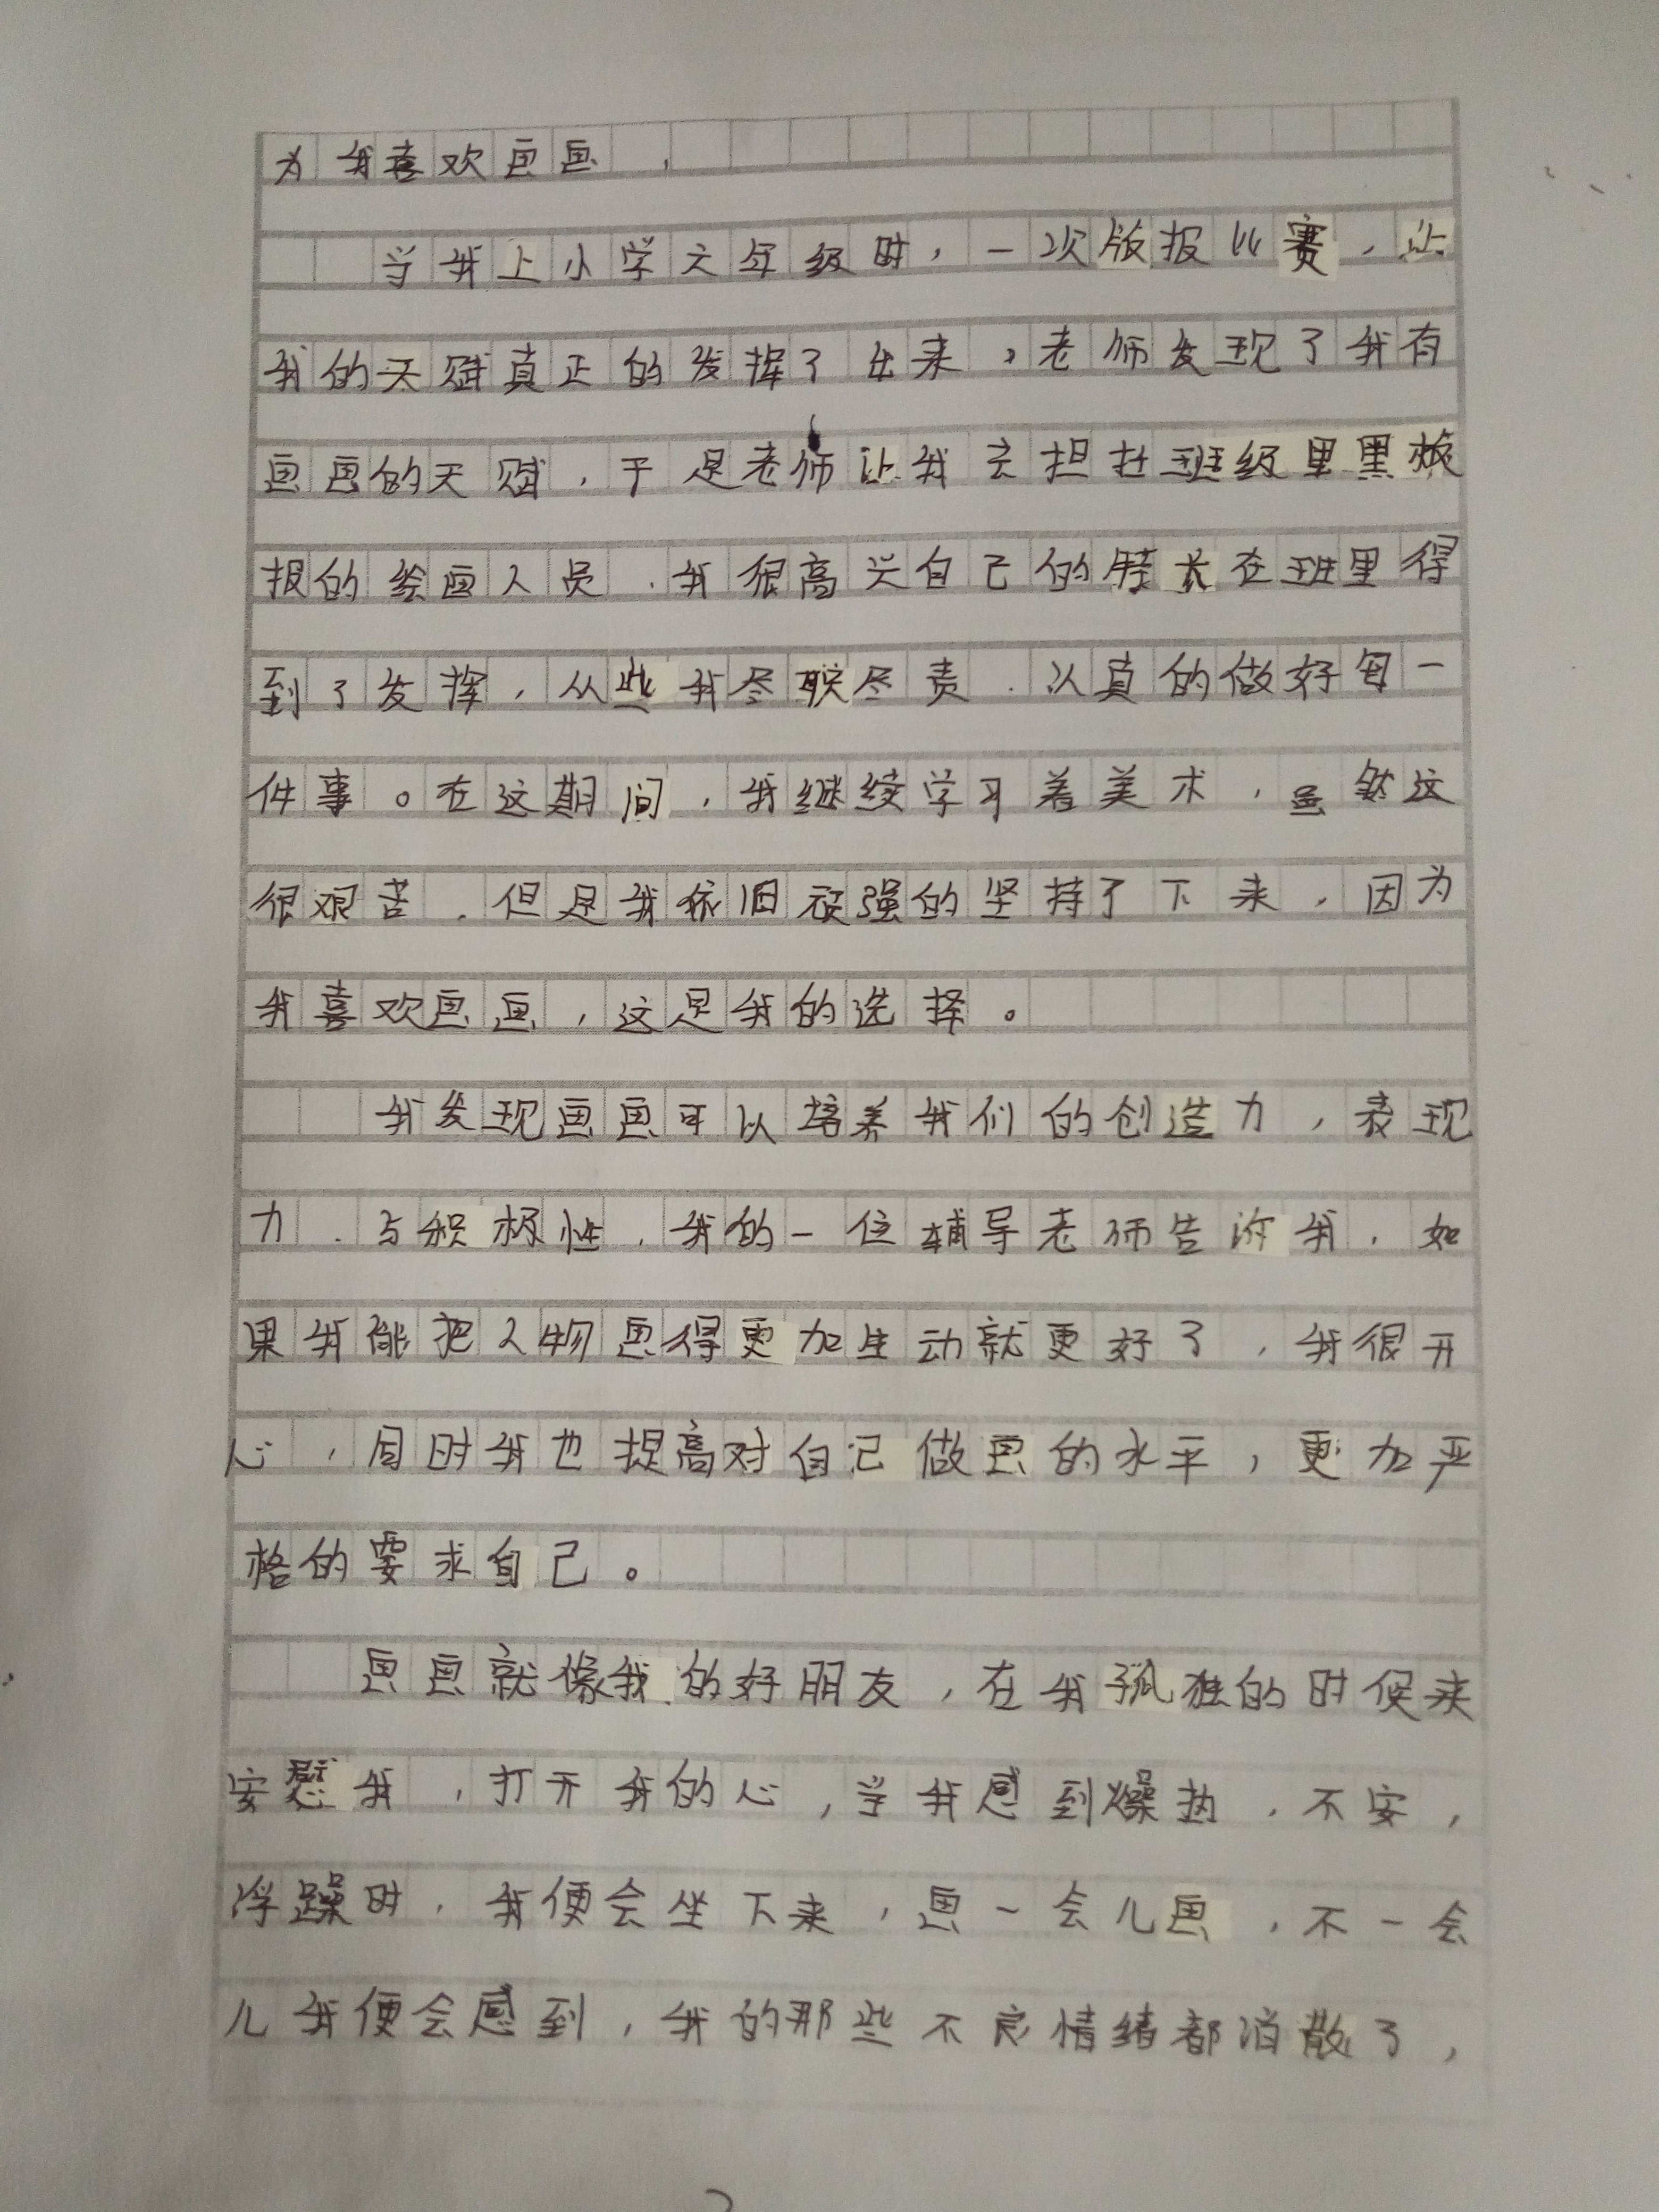 为我喜欢画画，
当我上小学六年级时，一次版报比赛，让
我的天赋真正的发挥了出来，老师发现了我有
画画的天赋，于是老师让我去担任班级里黑板
报的绘画人员，我很高兴自己的特长在班里得
到了发挥，从此我尽职尽责，认真的做好每一
件事。在这期间，我继续学习着美术，虽然这
很艰苦，但是我依旧顽强的坚持了下来，因为
我喜欢画画，这是我的选择。
我发现画画可以培养我们的创造力，表现
力，与积极性，我的一位辅导老师告诉我，如
果我能把人物画得更加生动就更好了，我很开
心，同时我也提高对自己做画的水平，更加严
格的要求自己。
画画就像我的好朋友，在我孤独的时候来
安慰我，打开我的心，当我感到燥热，不安，
浮躁时，我便会坐下来，画一会儿画，不一会
儿我便会感到，我的那些不良情绪都消散了，